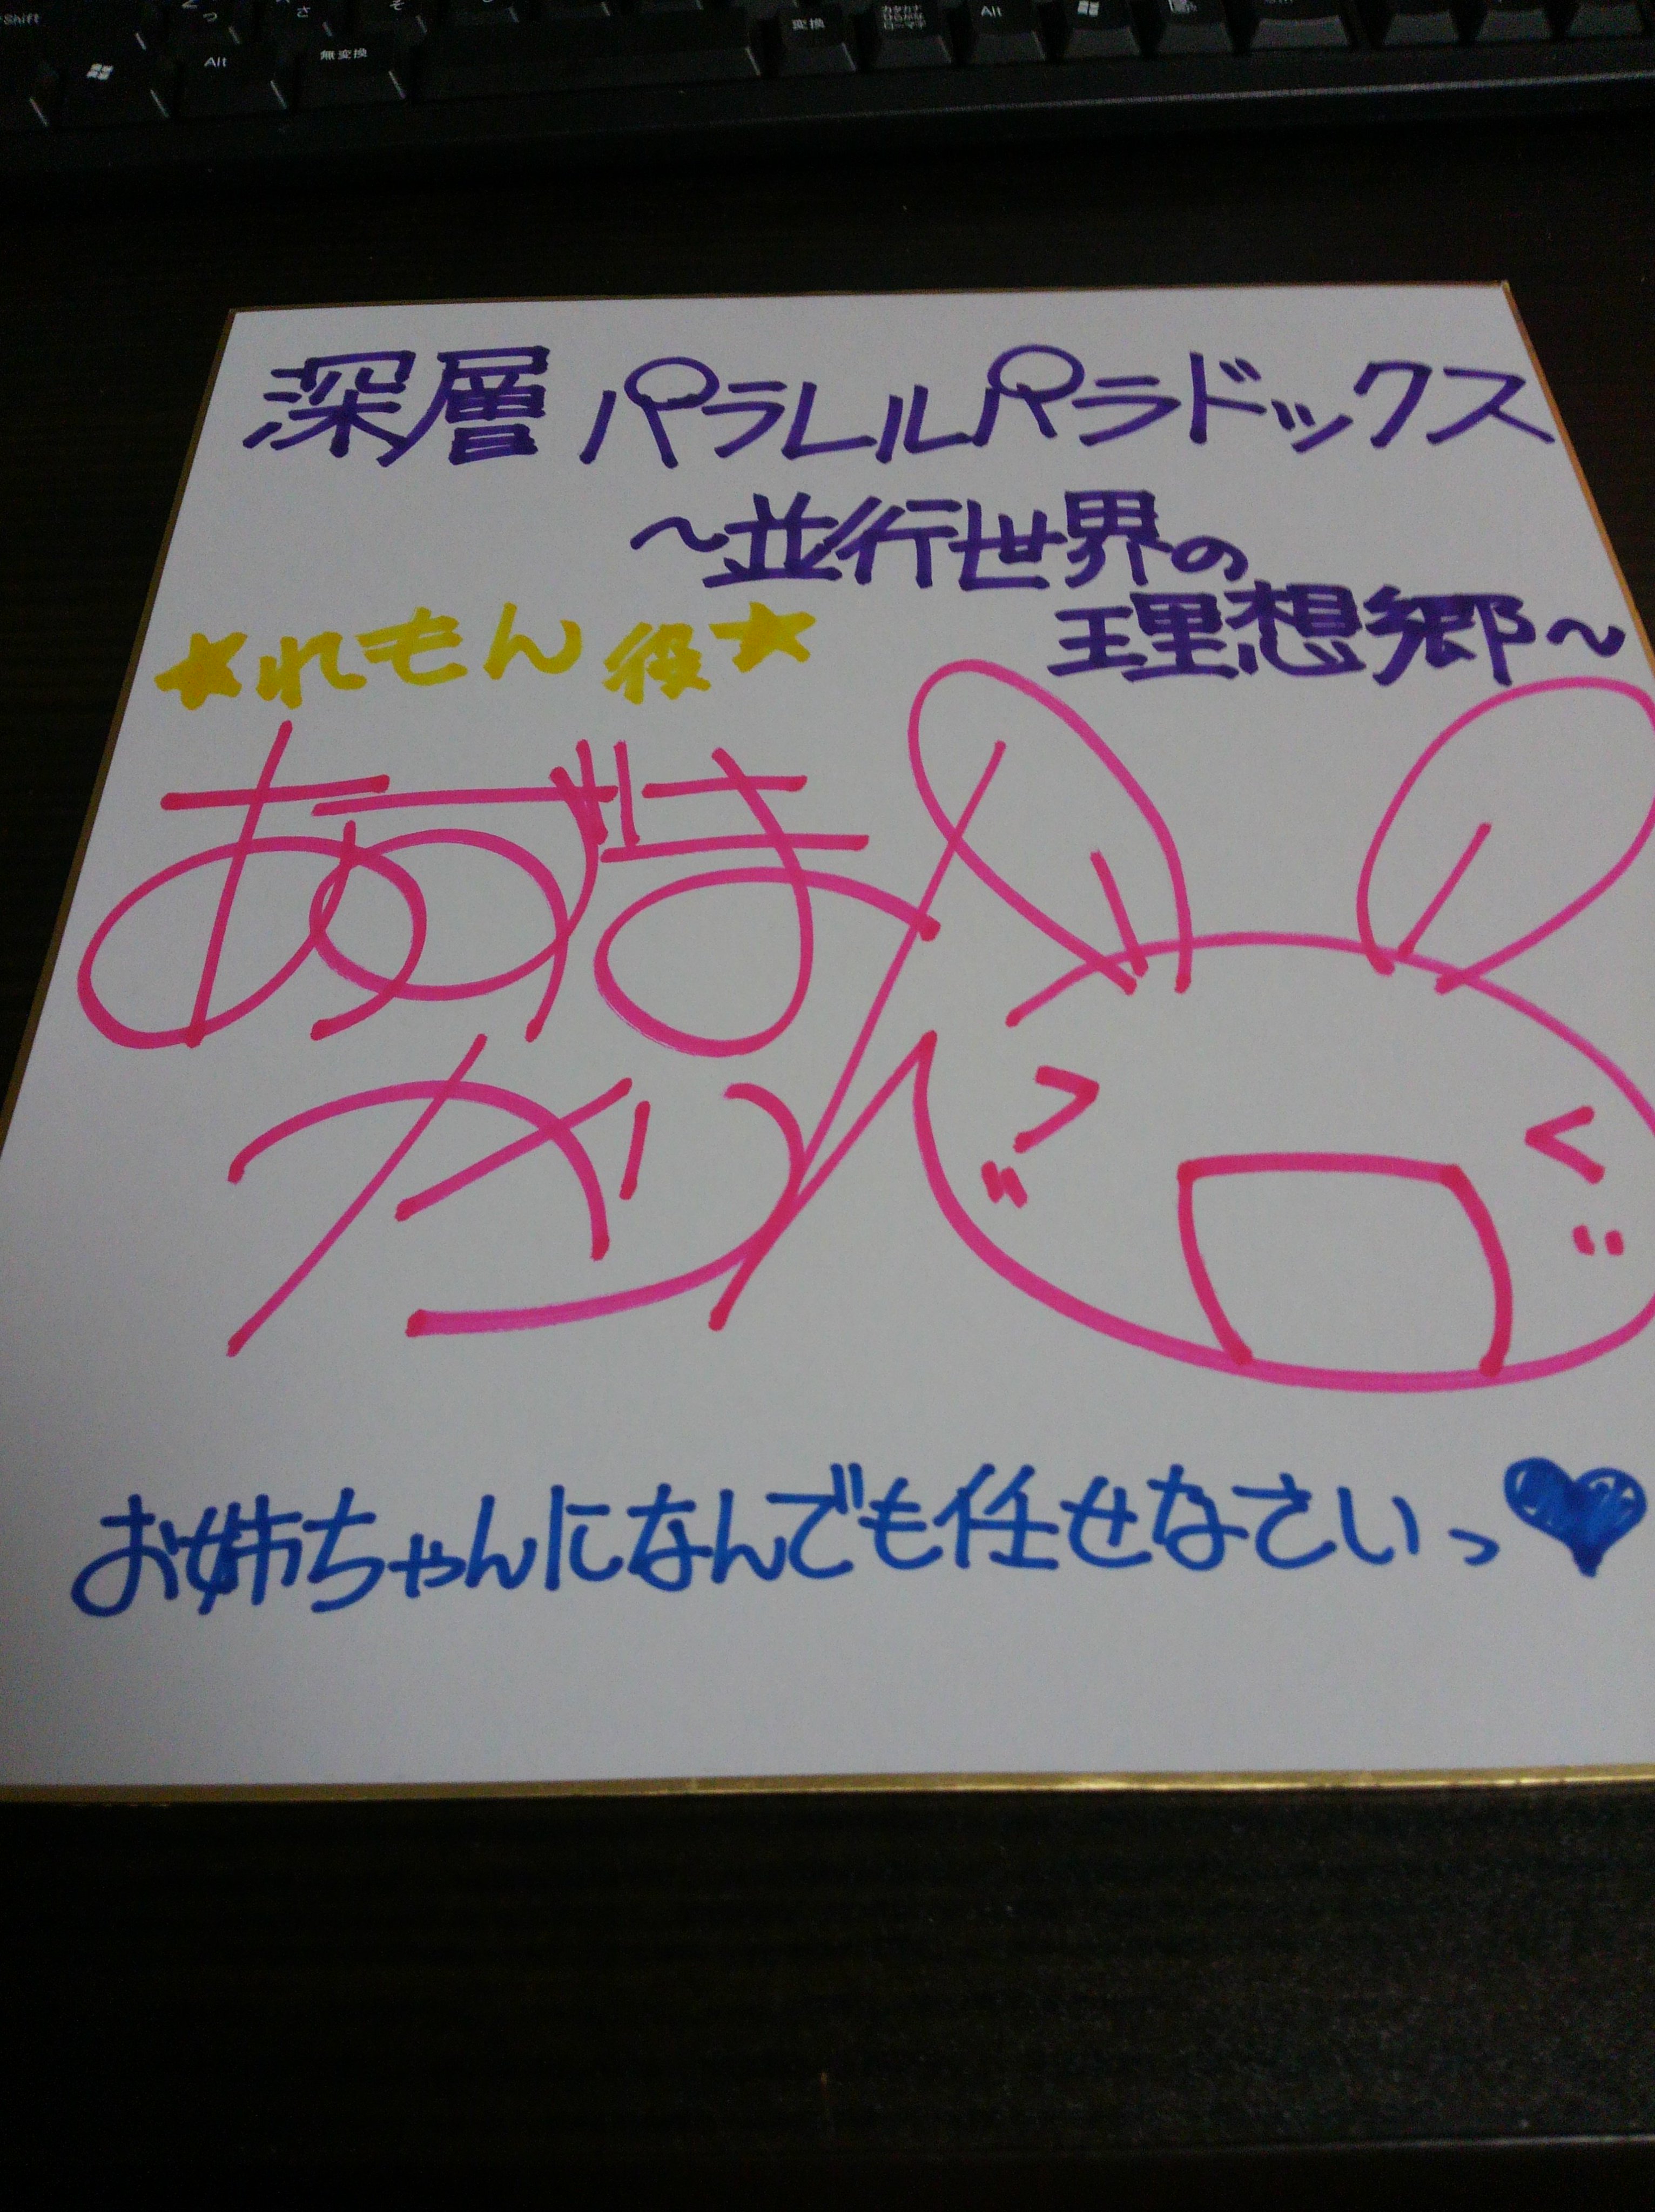 Shift
つ
さ
そ
Alt
無変換
変換
カタカナ
ひらがな
ローマ字
Alt
深層パラレルパラドックス
～並行世界の
理想郷～
★れもん役★
あずき
かりん
お姉ちゃんになんでも任せなさいっ♥